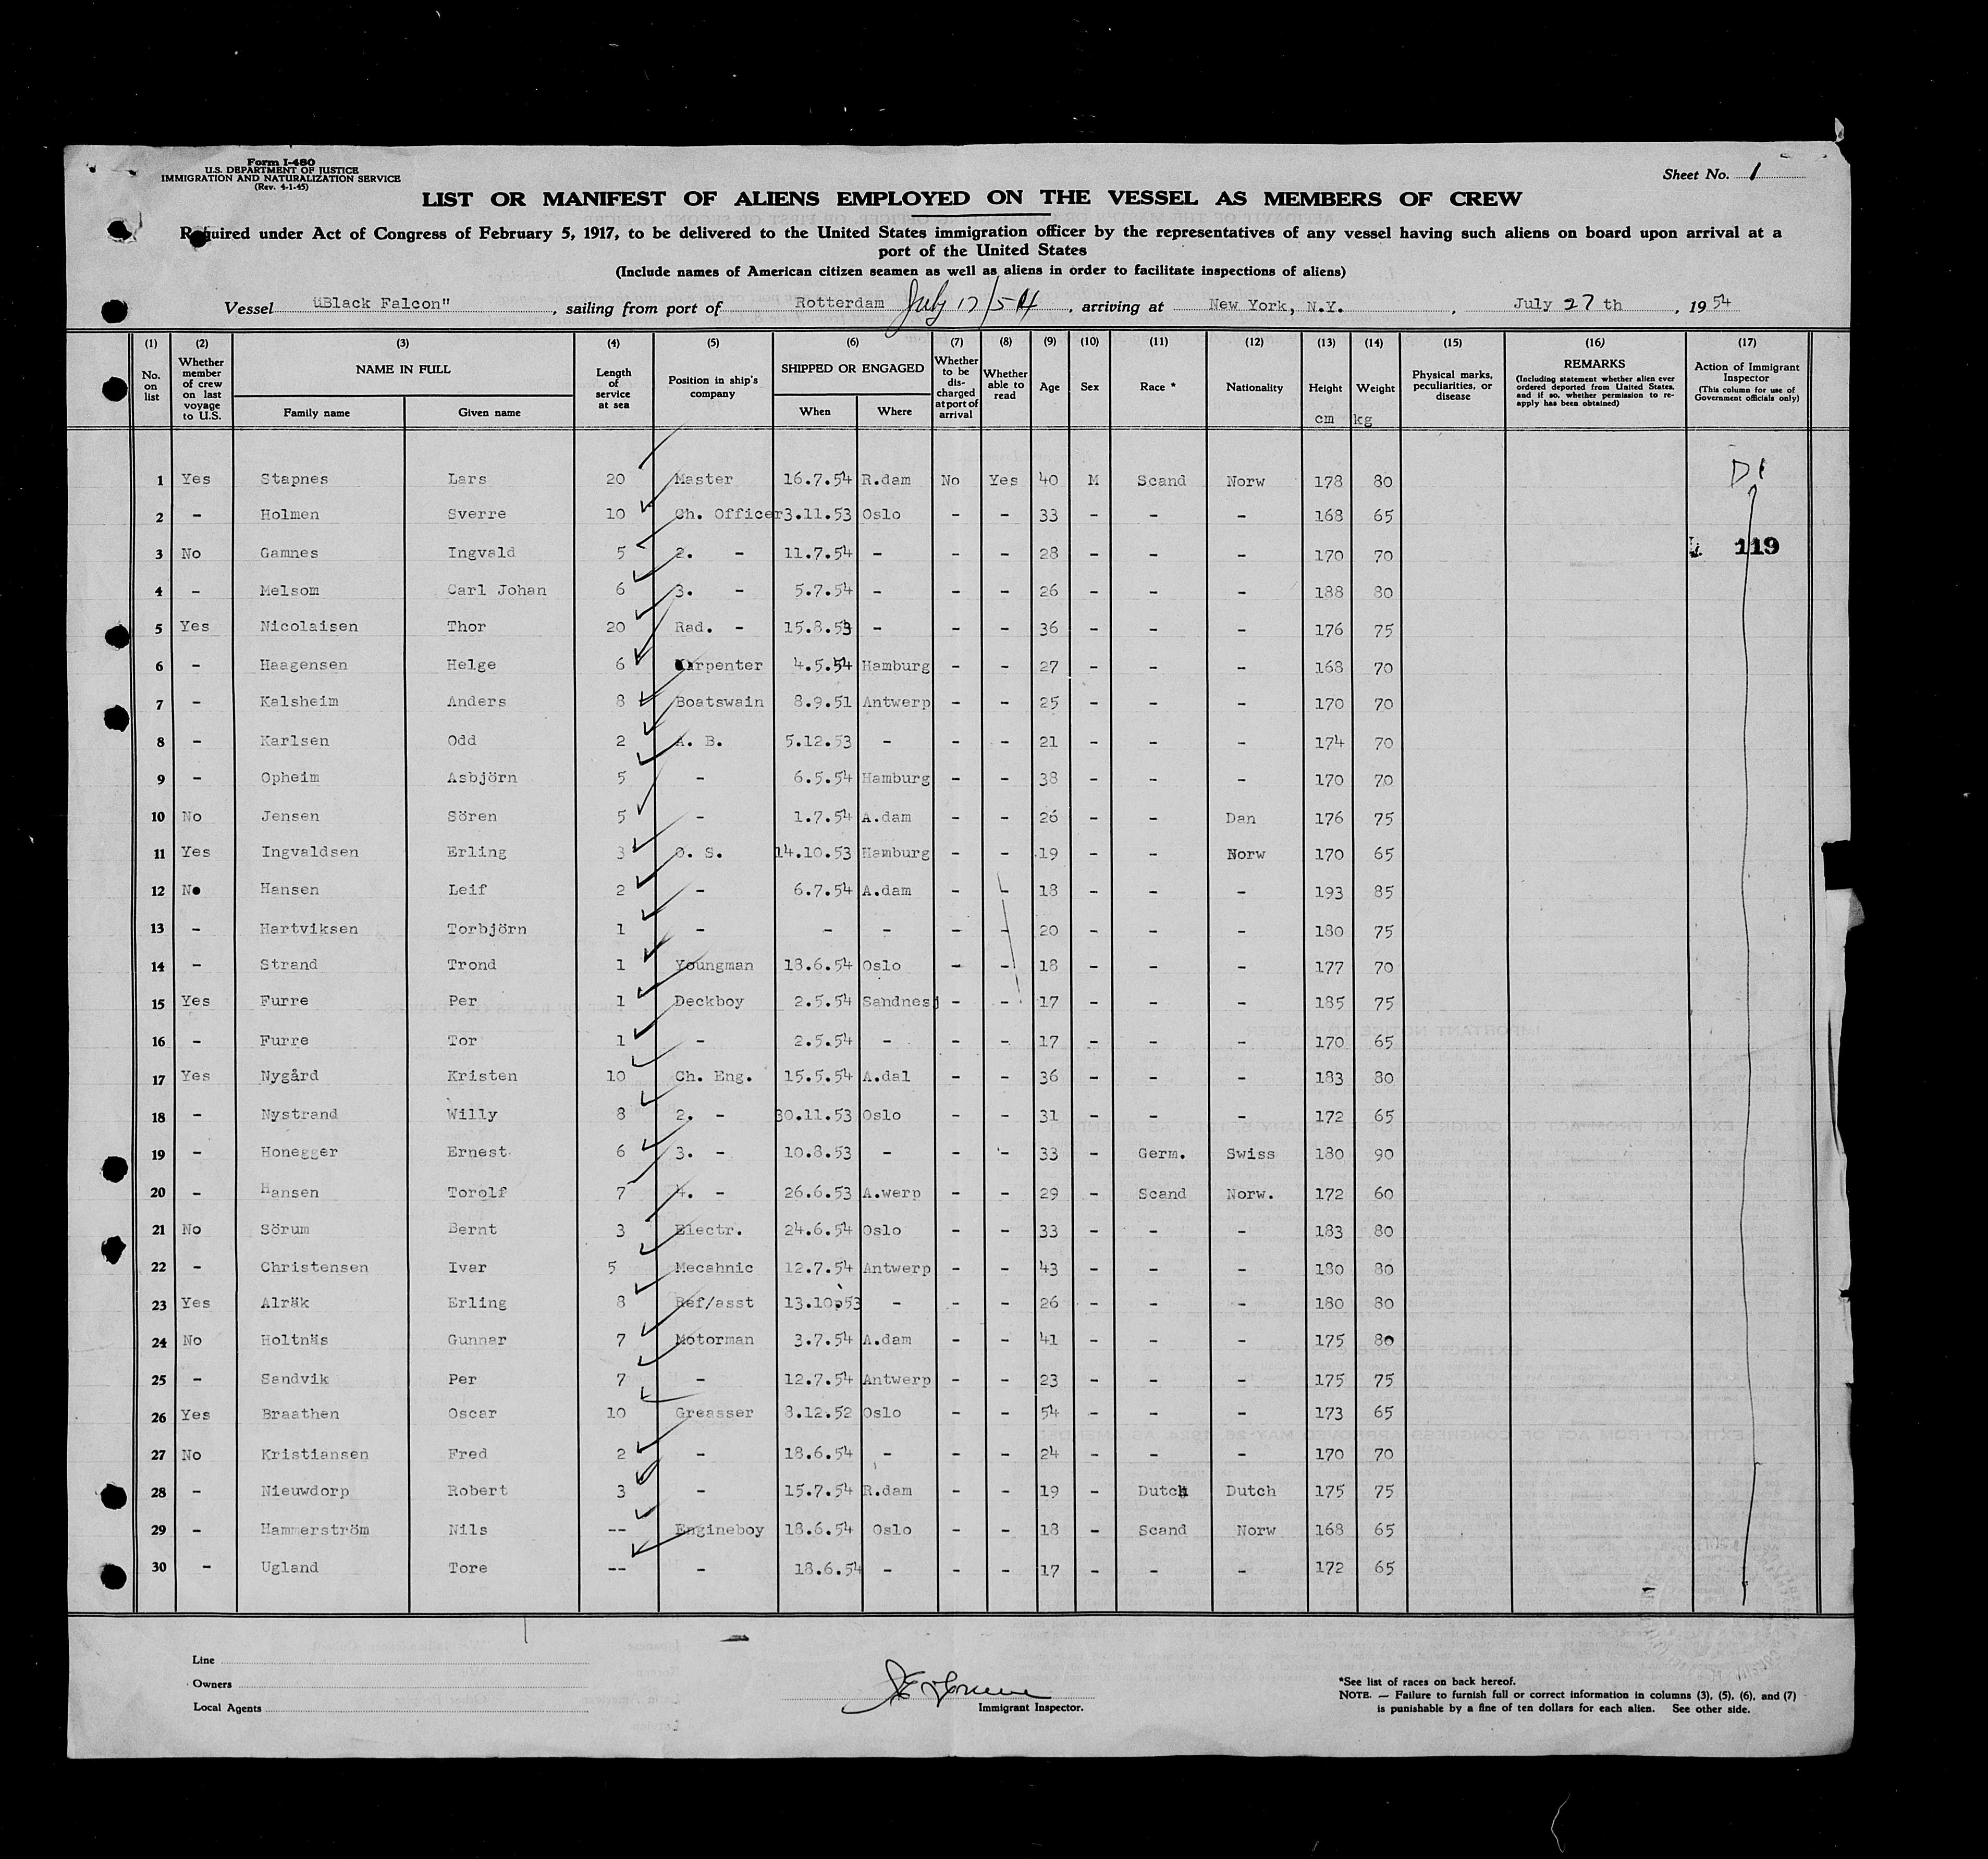 Form I-480
U.S. DEPARTMENT OF JUSTICE
IMMIGRATION AND NATURALIZATION SERVICE
(Rev. 4-1-45)
Sheet No. 1
LIST OR MANIFEST OF ALIENS EMPLOYED ON THE VESSEL AS MEMBERS OF CREW
Required under Act of Congress of February 5, 1917, to be delivered to the United States immigration officer by the representatives of any vessel having such aliens on board upon arrival at a
port of the United States
(Include names of American citizen seamen as well as aliens in order to facilitate inspections of aliens)
Vessel üBlack Falcon" , sailing from port of Rotterdam July 17/54 , arriving at New York, N.Y. , July 27 th , 1954
(1) (2) (3) (4) (5) (6) (7) (8) (9) (10) (11) (12) (13) (14) (15) (16) (17)
No. on list
Whether member of crew on last voyage to U.S.
NAME IN FULL
Family name Given name
Length of service at sea
Position in ship's company
SHIPPED OR ENGAGED
When Where
Whether to be discharged at port of arrival
Whether able to read
Age
Sex
Race *
Nationality
Height cm
Weight kg
Physical marks, peculiarities, or disease
REMARKS
(Including statement whether alien ever ordered deported from United States, and if so, whether permission to re-apply has been obtained)
Action of Immigrant Inspector
(This column for use of Government officials only)
1 Yes Stapnes Lars 20 Master 16.7.54 R.dam No Yes 40 M Scand Norw 178 80
2 - Holmen Sverre 10 Ch. Officer 3.11.53 Oslo - - 33 - - - 168 65
3 No Gamnes Ingvald 5 2. - 11.7.54 - - - 28 - - - 170 70 119
4 - Melsom Carl Johan 6 3. - 5.7.54 - - - 26 - - - 188 80
5 Yes Nicolaisen Thor 20 Rad. - 15.8.53 - - - 36 - - - 176 75
6 - Haagensen Helge 6 Carpenter 4.5.54 Hamburg - - 27 - - - 168 70
7 - Kalsheim Anders 8 Boatswain 8.9.51 Antwerp - - 25 - - - 170 70
8 - Karlsen Odd 2 A. B. 5.12.53 - - - 21 - - - 174 70
9 - Opheim Asbjörn 5 - 6.5.54 Hamburg - - 38 - - - 170 70
10 No Jensen Sören 5 - 1.7.54 A.dam - - 26 - - Dan 176 75
11 Yes Ingvaldsen Erling 3 O. S. 14.10.53 Hamburg - - 19 - - Norw 170 65
12 No Hansen Leif 2 - 6.7.54 A.dam - - 18 - - - 193 85
13 - Hartviksen Torbjörn 1 - - - - - 20 - - - 180 75
14 - Strand Trond 1 Youngman 18.6.54 Oslo - - 18 - - - 177 70
15 Yes Furre Per 1 Deckboy 2.5.54 Sandnesj - - 17 - - - 185 75
16 - Furre Tor 1 - 2.5.54 - - - 17 - - - 170 65
17 Yes Nygård Kristen 10 Ch. Eng. 15.5.54 A.dal - - 36 - - - 183 80
18 - Nystrand Willy 8 2. - 30.11.53 Oslo - - 31 - - - 172 65
19 - Honegger Ernest 6 3. - 10.8.53 - - - 33 - Germ. Swiss 180 90
20 - Hansen Torolf 7 4. - 26.6.53 A.werp - - 29 - Scand Norw. 172 60
21 No Sörum Bernt 3 Electr. 24.6.54 Oslo - - 33 - - - 183 80
22 - Christensen Ivar 5 Mecahnic 12.7.54 Antwerp - - 43 - - - 180 80
23 Yes Alräk Erling 8 Ref/asst 13.10.53 - - - 26 - - - 180 80
24 No Holtnäs Gunnar 7 Motorman 3.7.54 A.dam - - 41 - - - 175 80
25 - Sandvik Per 7 - 12.7.54 Antwerp - - 23 - - - 175 75
26 Yes Braathen Oscar 10 Greasser 8.12.52 Oslo - - 54 - - - 173 65
27 No Kristiansen Fred 2 - 18.6.54 - - - 24 - - - 170 70
28 - Nieuwdorp Robert 3 - 15.7.54 R.dam - - 19 - Dutch Dutch 175 75
29 - Hammerström Nils -- Engineboy 18.6.54 Oslo - - 18 - Scand Norw 168 65
30 - Ugland Tore -- - 18.6.54 - - - 17 - - - 172 65
Line
Owners
Local Agents
Immigrant Inspector.
*See list of races on back hereof.
NOTE. — Failure to furnish full or correct information in columns (3), (5), (6), and (7)
is punishable by a fine of ten dollars for each alien. See other side.